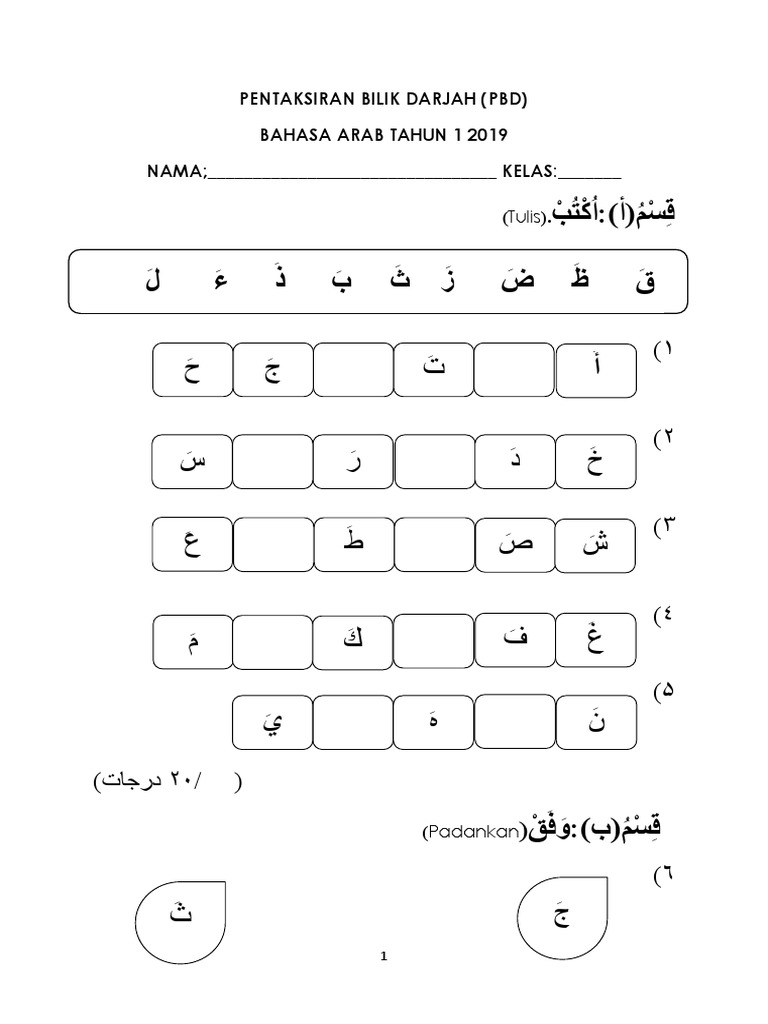 PENTAKSIRAN BILIK DARJAH (PBD)
BAHASA ARAB TAHUN 1 2019
NAMA;________________________________ KELAS:_______
قِسْمُ(أ):اُكْتُبْ.(Tulis)
قَ ظَ ضَ زَ ثَ بَ ذَ ءَ لَ
١) أَ تَ جَ حَ
٢) خَ دَ رَ سَ
٣) شَ صَ طَ عَ
٤) غَ فَ كَ مَ
٥) نَ هَ يَ
( /٢٠ درجات)
قِسْمُ(ب):وَفِّقْ(Padankan)
٦)
جَ ثَ
1